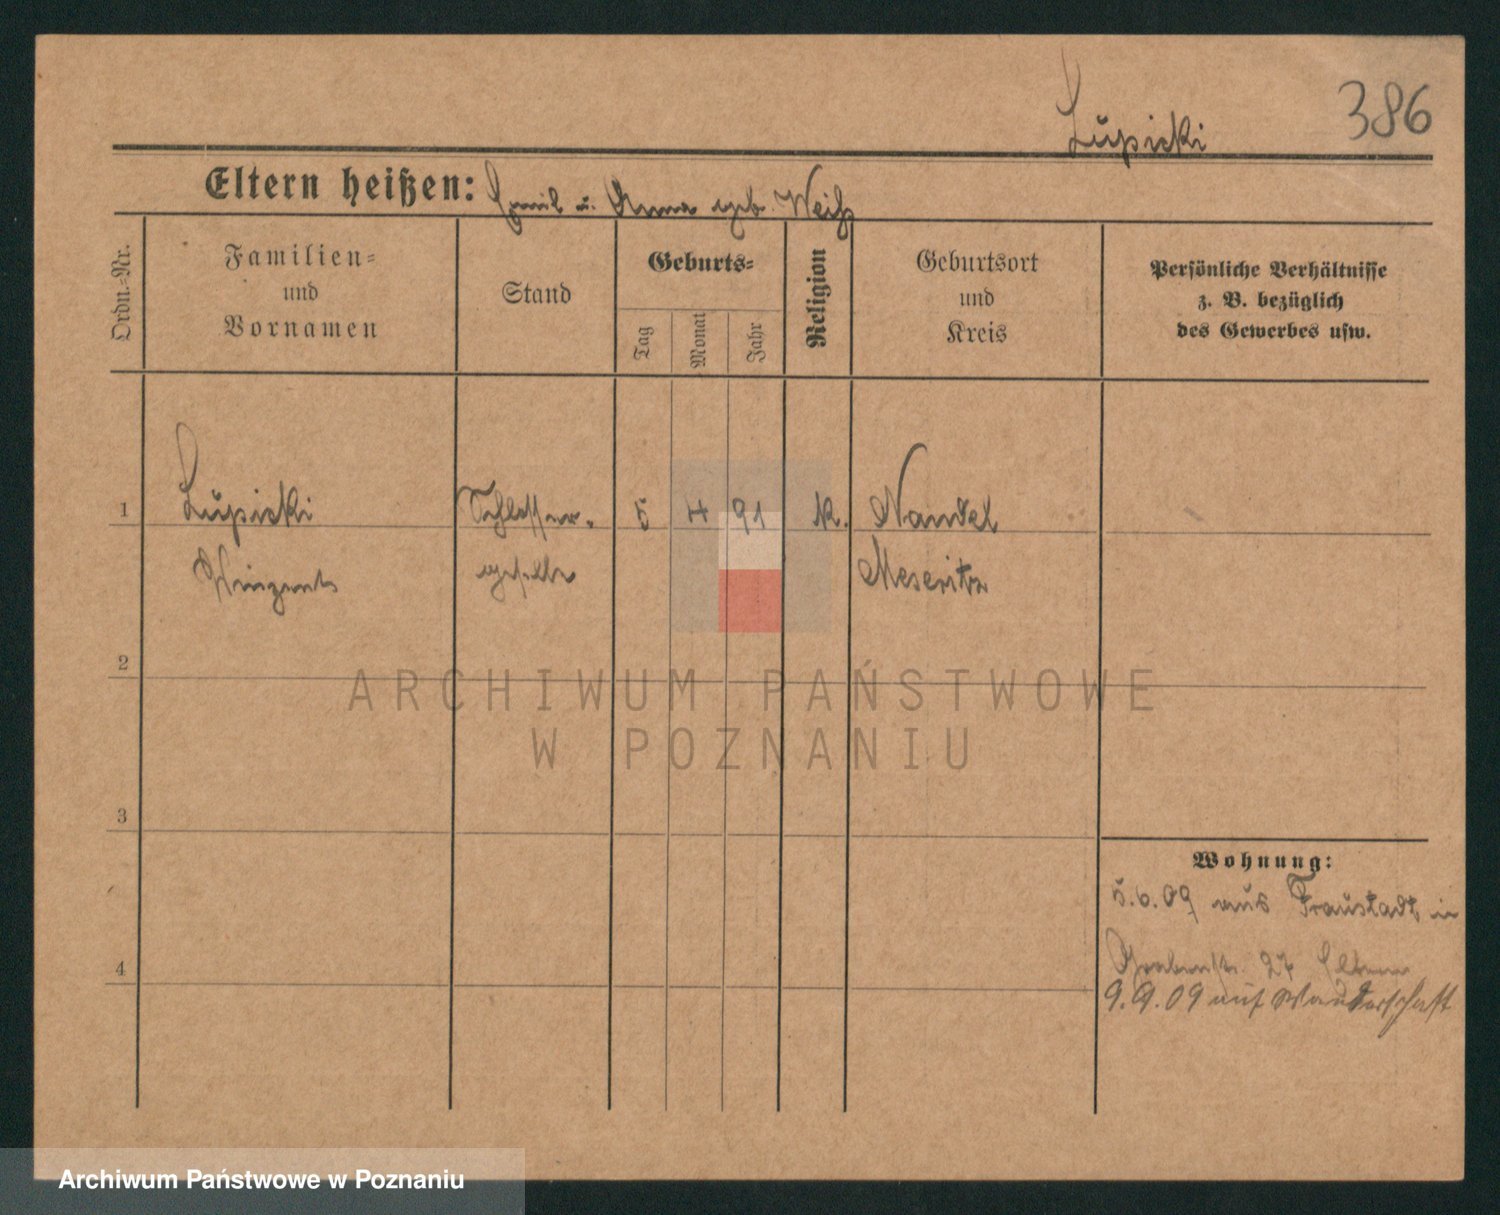 386
Lupicki
Eltern heißen: Emil u. Anna geb. Weiß
Ordn.-Nr.
Familien-
und
Vornamen
Stand
Geburts-
Tag
Monat
Jahr
Religion
Geburtsort
und
Kreis
Persönliche Verhältnisse
z. B. bezüglich
des Gewerbes usw.
1 Lupicki Schlosser- 5 4 91 k. Nandel
Vinzent geselle Meseritz
2
3
4
Wohnung:
5.6.09 aus Fraustadt in
Grabenstr. 27 Eltern
9.9.09 auf Wanderschaft
ARCHIWUM PAŃSTWOWE
W POZNANIU
Archiwum Państwowe w Poznaniu